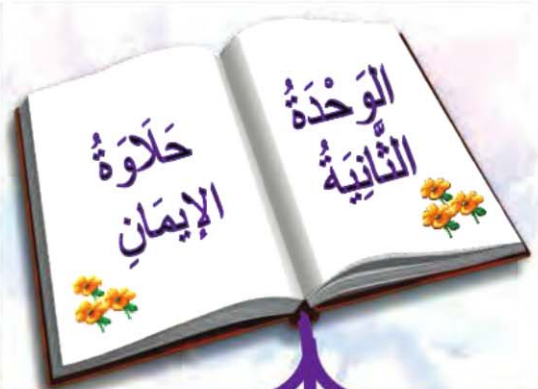 الوَحْدَةُ
الثَّانِيَةُ
حَلَاوَةُ
الإِيمَانِ